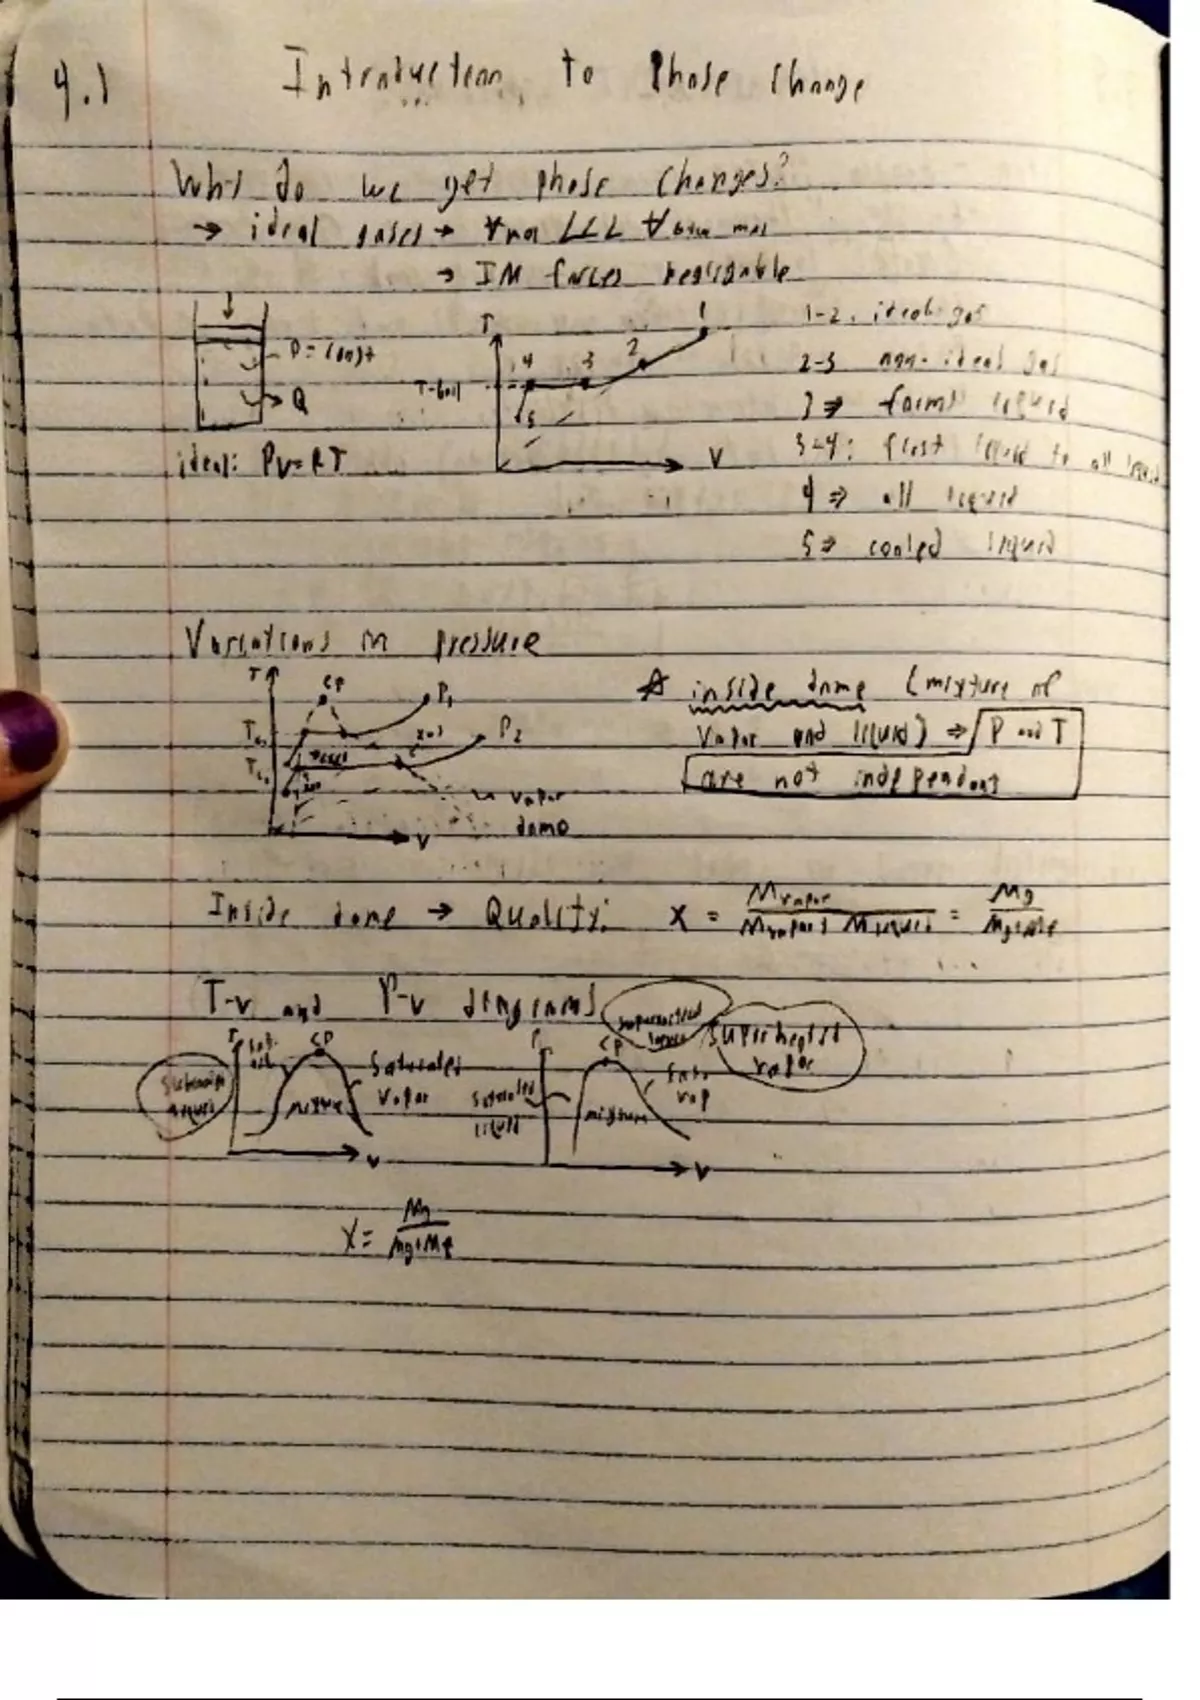 4.1 Introduction to Phase Change
Why do we get phase changes?
→ ideal gases → ∀mol <<< ∀btw mol
→ IM forces negligable
P = const
Q
ideal: Pv=RT
T
T-boil
4 3 2 1
5
V
1-2: ideal gas
2-3 non-ideal gas
3 ⇒ forms liquid
3-4: first liquid to all liquid
4 ⇒ all liquid
5 ⇒ cooled liquid
Variations in pressure
T
CP
P1
P2
vapor
dome
V
☆ inside dome (mixture of
vapor and liquid) ⇒ P and T
are not independent
Inside dome → Quality: X = Mvapor / Mvapor + Mliquid = Mg / Mg+Mf
T-v and P-v diagrams
T
sat.
CP
saturated
vapor
mixture
liquid
V
P
CP
superheated
vapor
saturated
liquid
mixture
sat.
vap
V
X = Mg / Mg+Mf